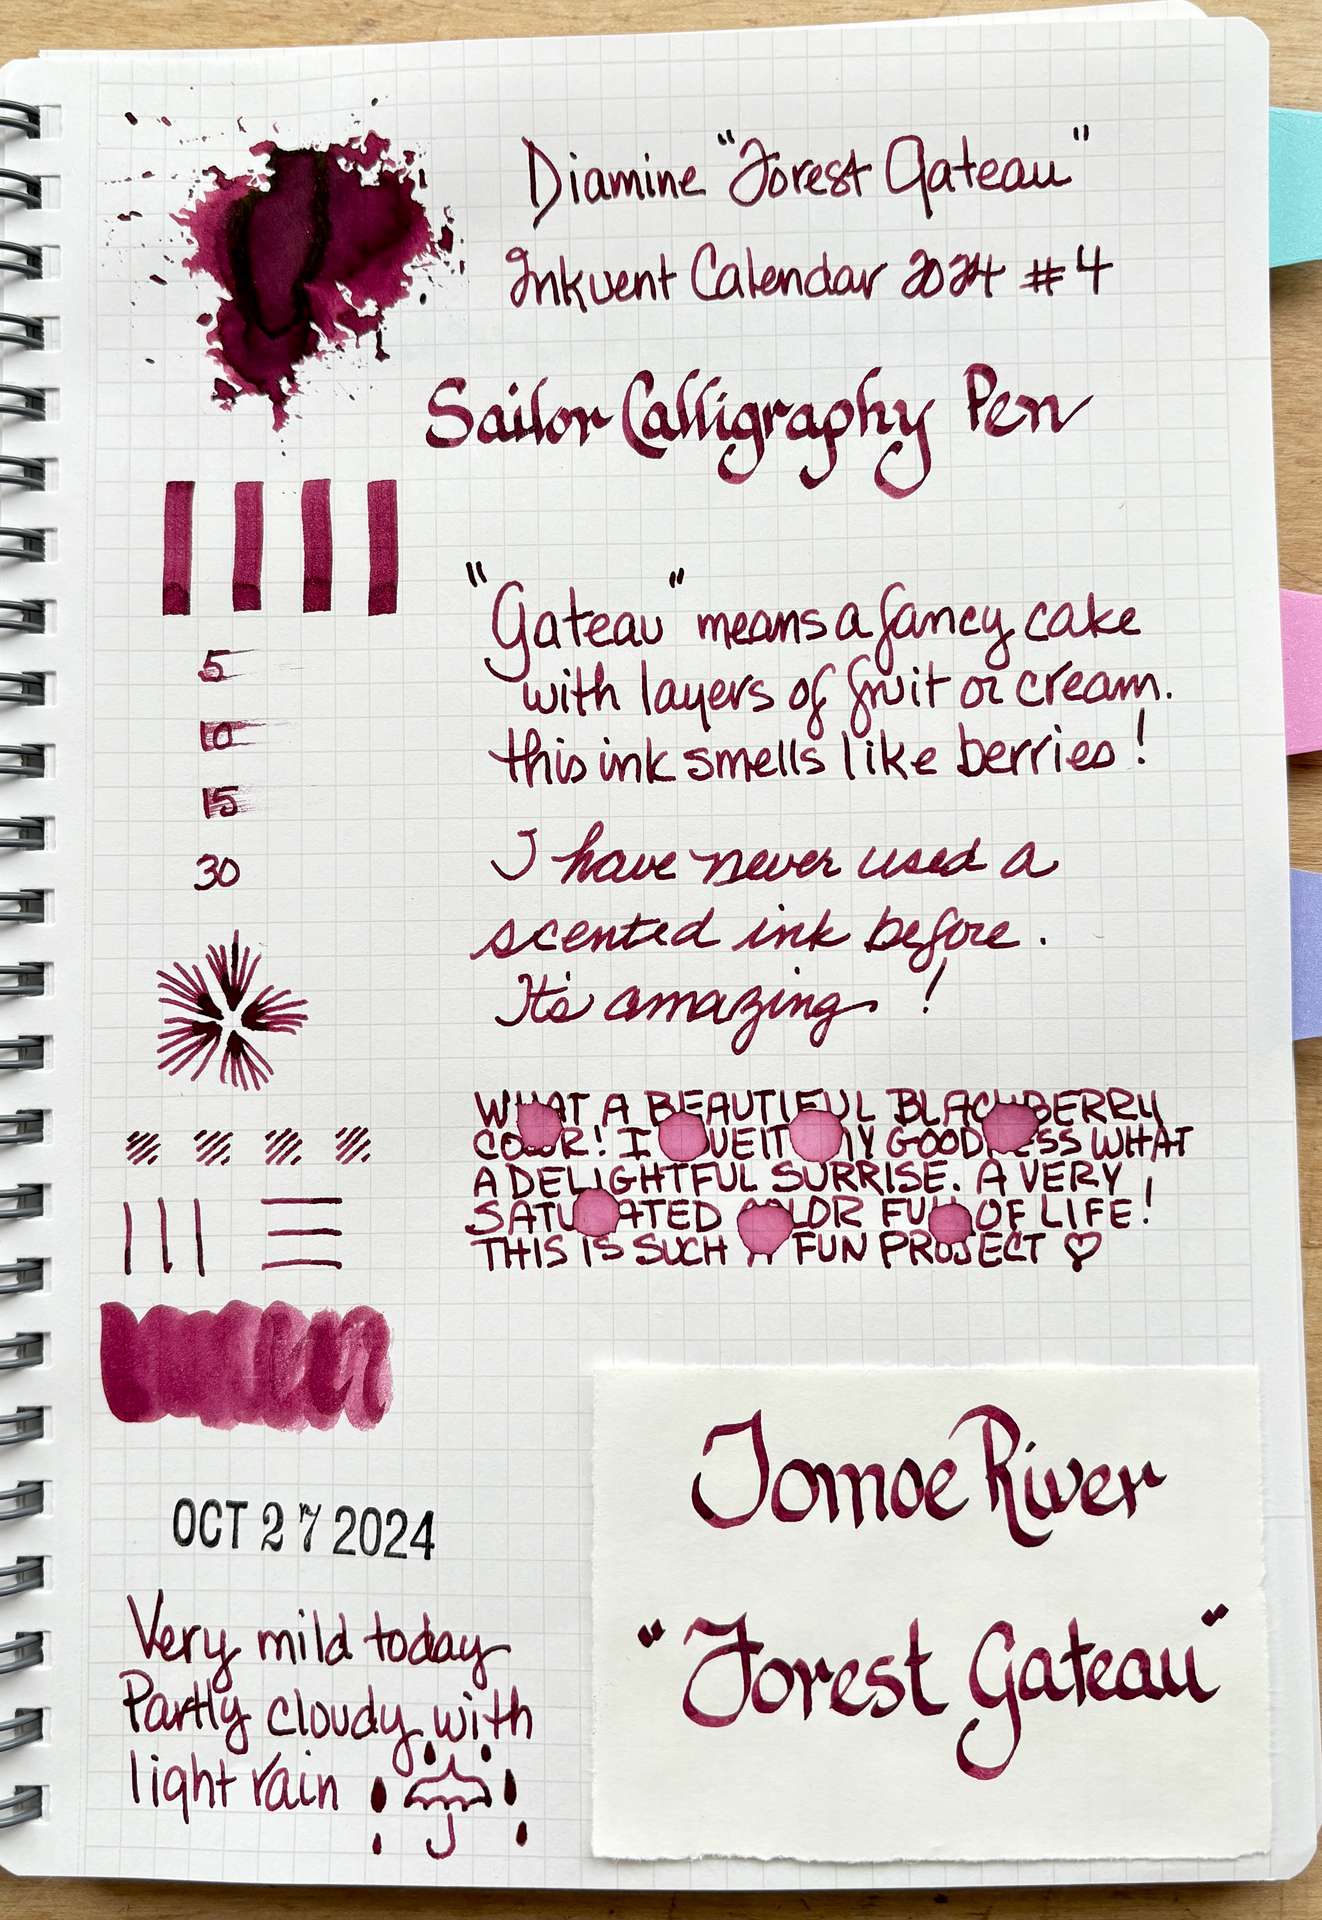 Diamine "Forest Gateau"
Inkvent Calendar 2024 #4
Sailor Calligraphy Pen
5
10
15
30
"Gateau" means a fancy cake
with layers of fruit or cream.
this ink smells like berries!
I have never used a
scented ink before.
It's amazing!
WHAT A BEAUTIFUL BLACKBERRY
COLOR! I LOVE IT MY GOODNESS WHAT
A DELIGHTFUL SURRISE. A VERY
SATURATED COLOR FULL OF LIFE!
THIS IS SUCH A FUN PROJECT ♡
OCT 27 2024
Very mild today
Partly cloudy with
light rain
Tomoe River
"Forest Gateau"